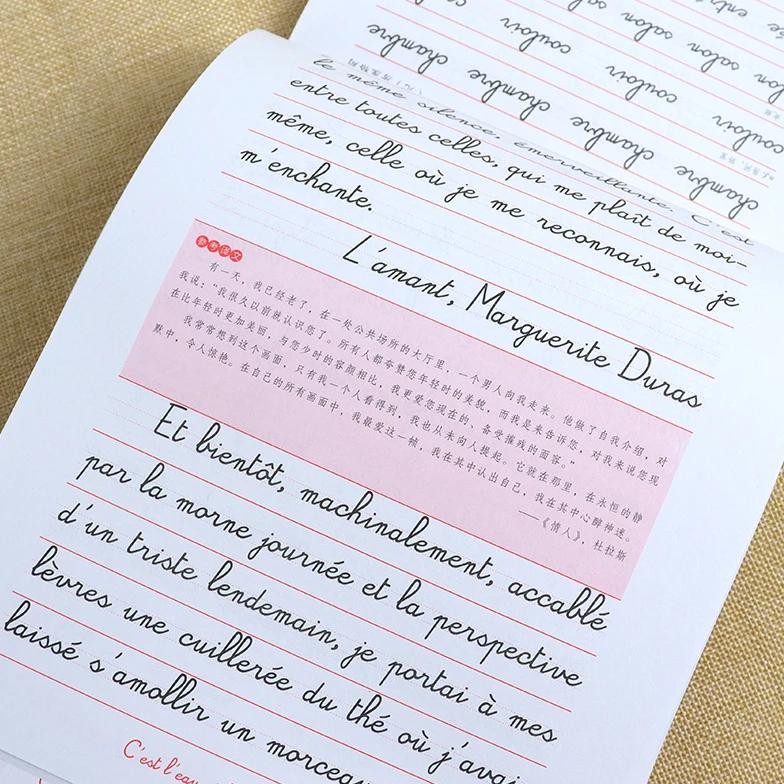 le même silence, émerveillante. C'est
entre toutes celles, qui me plaît de moi-
même, celle où je me reconnais, où je
m'enchante.
L'amant, Marguerite Duras
参考译文
有一天，我已经老了，在一处公共场所的大厅里，一个男人向我走来。他做了自我介绍，对
我说：“我很久以前就认识您了。所有人都夸赞您年轻时的美貌，而我是来告诉您，对我来说您现
在比年轻时更加美丽，与您少时的容颜相比，我更爱您现在的、备受摧残的面容。”
我常常想到这个画面，只有我一个人看得到，我也从未向人提起。它就在那里，在永恒的静
默中，令人惊艳。在自己的所有画面中，我最爱这一帧，我在其中认出自己，我在其中心醉神迷。
——《情人》，杜拉斯
Et bientôt, machinalement, accablé
par la morne journée et la perspective
d'un triste lendemain, je portai à mes
lèvres une cuillerée du thé où j'avai
laissé s'amollir un morceau
C'est l'eau
salon salon salon entrée
couloir couloir couloir
chambre chambre chambre
couloir
chambre chambre chambre chambre